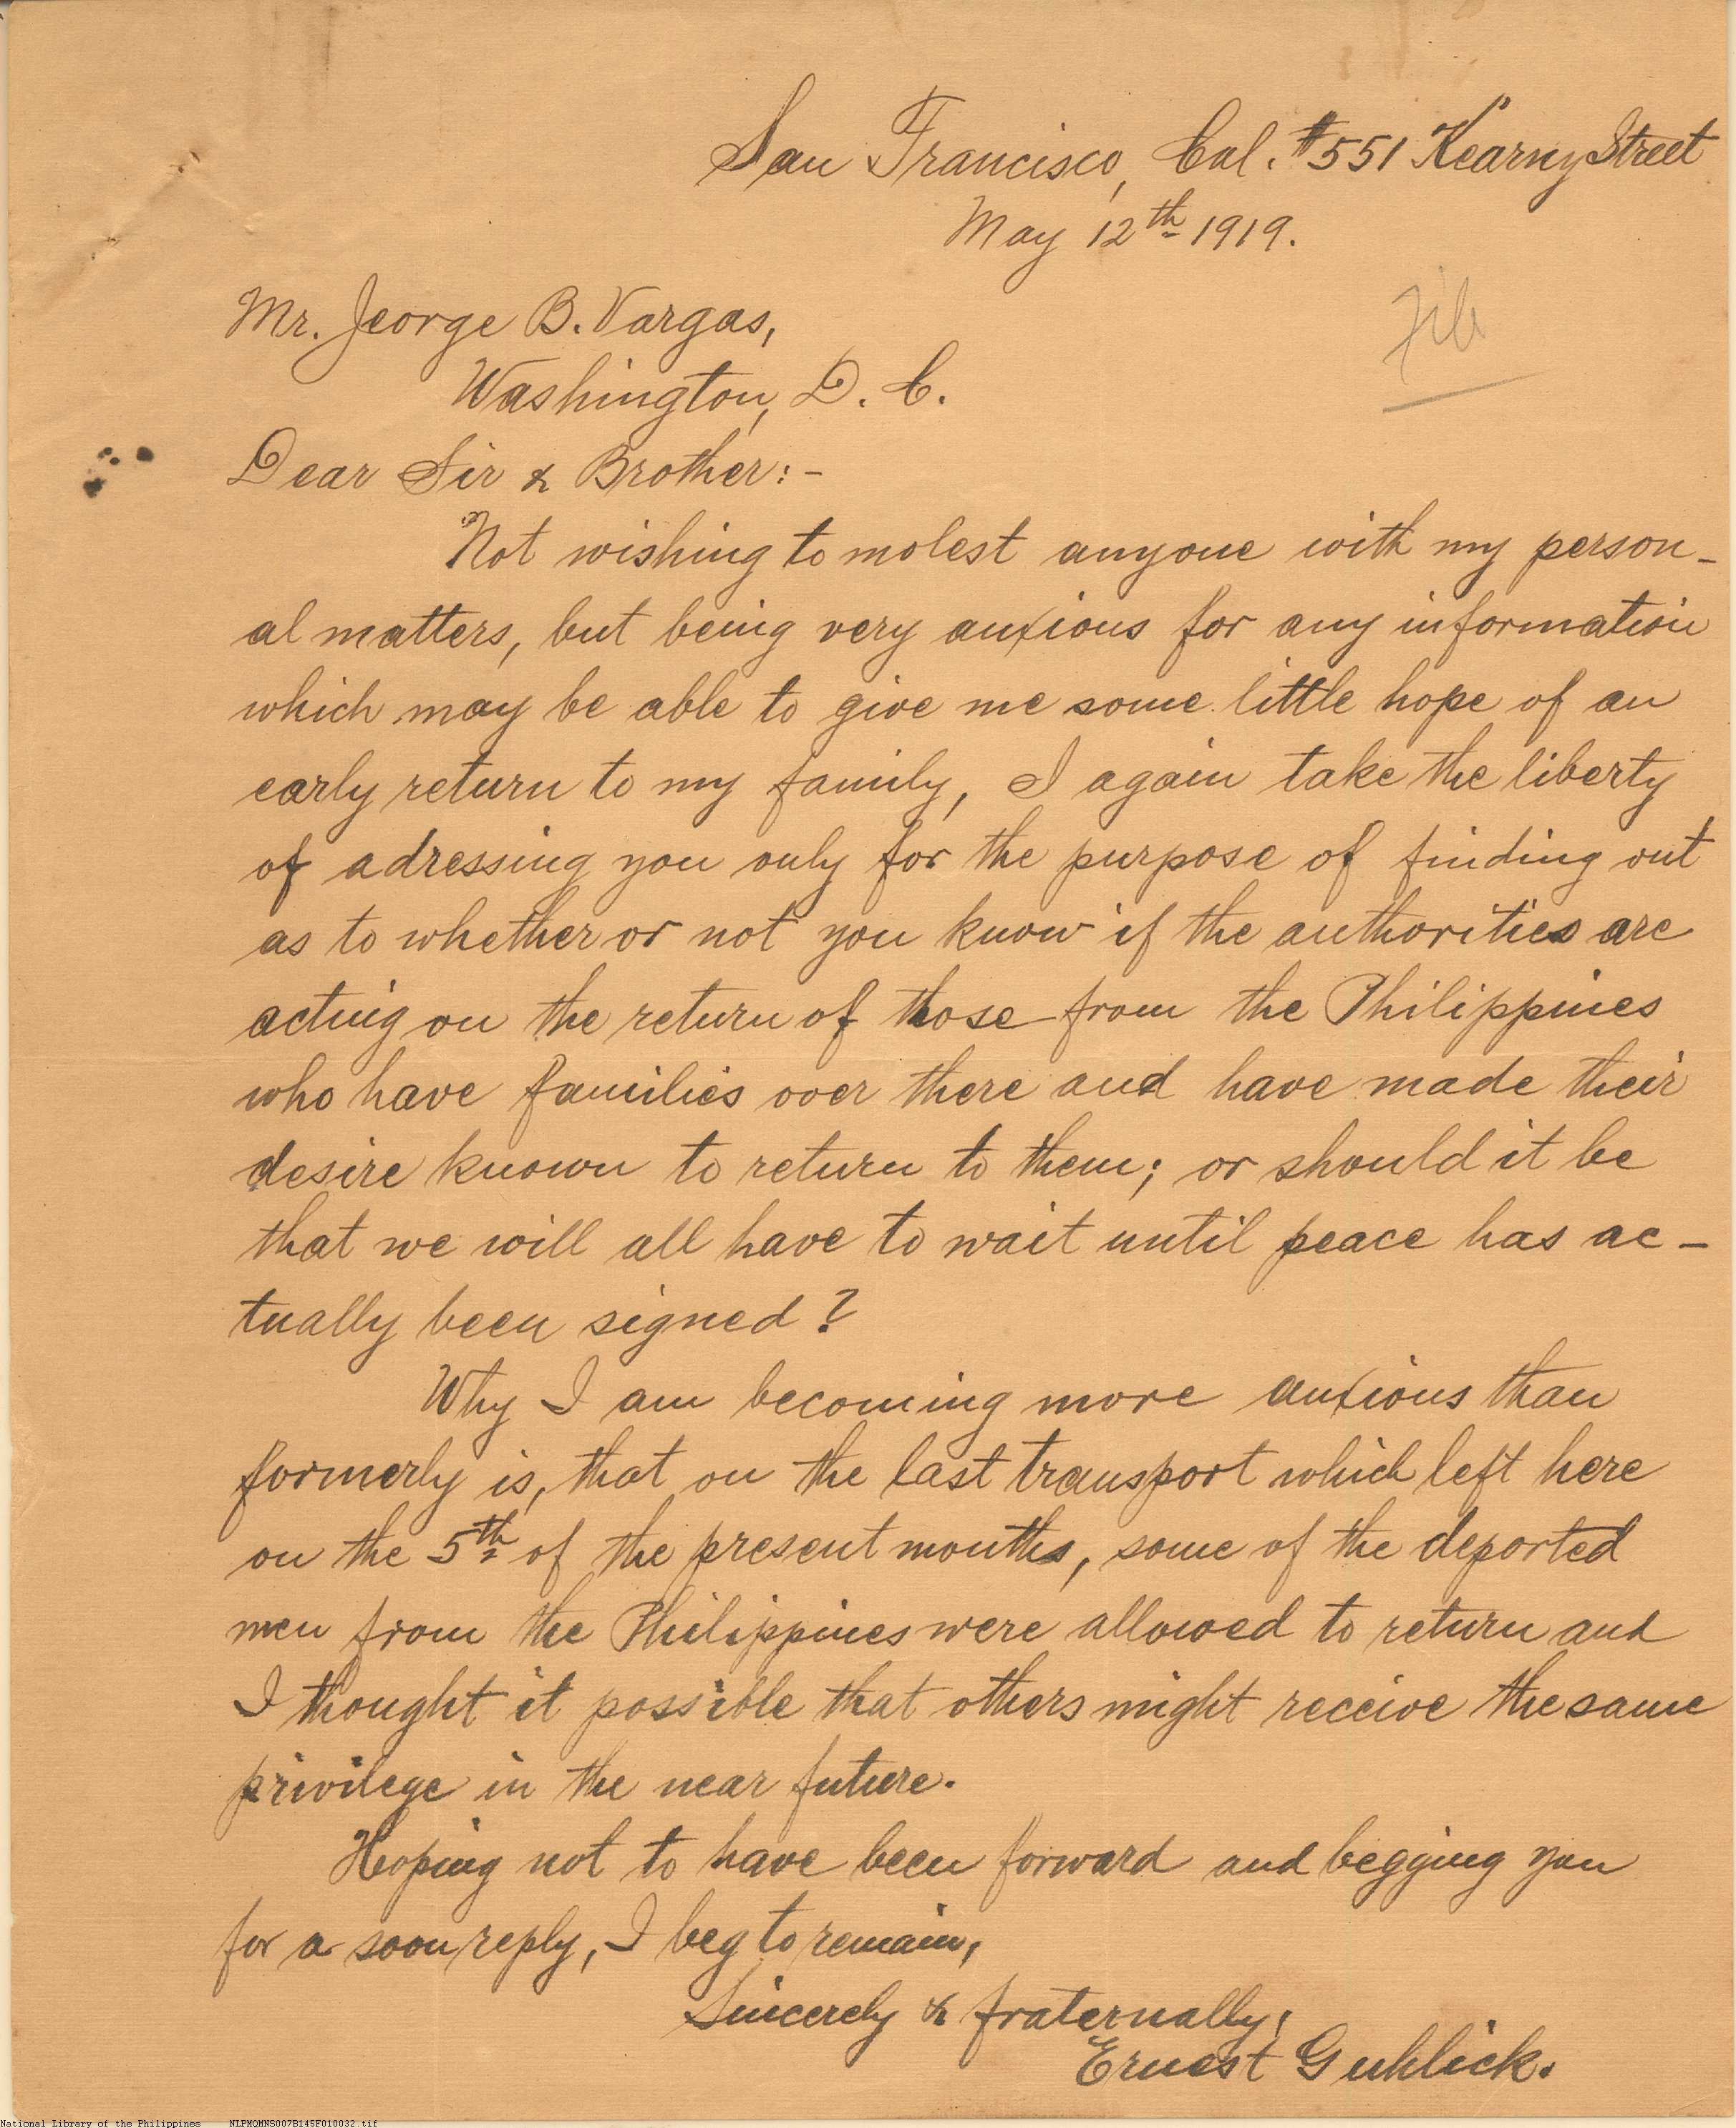 San Francisco, Cal. #551 Kearny Street
May 12th 1919.
Mr. Jeorge B. Vargas,
Washington, D. C.
Dear Sir & Brother:-
Not wishing to molest anyone with my person-
al matters, but being very anxious for any information
which may be able to give me some little hope of an
early return to my family, I again take the liberty
of adressing you only for the purpose of finding out
as to whether or not you know if the authorities are
acting on the return of those from the Philippines
who have families over there and have made their
desire known to return to them; or should it be
that we will all have to wait until peace has ac-
tually been signed?
Why I am becoming more anxious than
formerly is, that on the last transport which left here
on the 5th of the present months, some of the deported
men from the Philippines were allowed to return and
I thought it possible that others might receive the same
privilege in the near future.
Hoping not to have been forward and begging you
for a soon reply, I beg to remain,
Sincerely & fraternally,
Ernest Guhlick.
National Library of the Philippines NLPMQMNS007B145F010032.tif